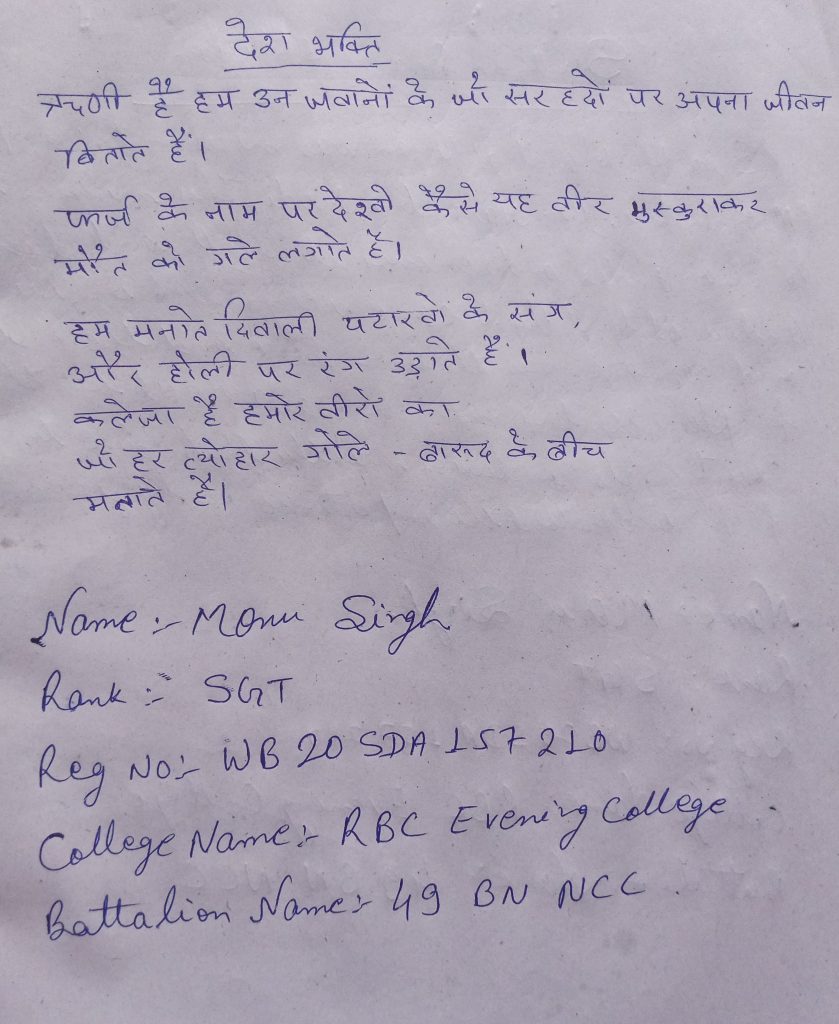 देश भक्ति
ऋणी है हम उन जवानों के जो सरहदों पर अपना जीवन
बिताते हैं।
फर्ज के नाम पर देखो कैसे यह वीर मुस्कुराकर
मौत को गले लगाते है।
हम मनाते दिवाली पटाखो के संग,
और होली पर रंग उड़ाते हैं।
कलेजा है हमारे वीरो का
जो हर त्योहार गोले - बारूद के बीच
मनाते है।
Name :- Monu Singh
Rank :- SGT
Reg No:- WB 20 SDA 157210
College Name:- RBC Evening College
Battalion Name:- 49 BN NCC